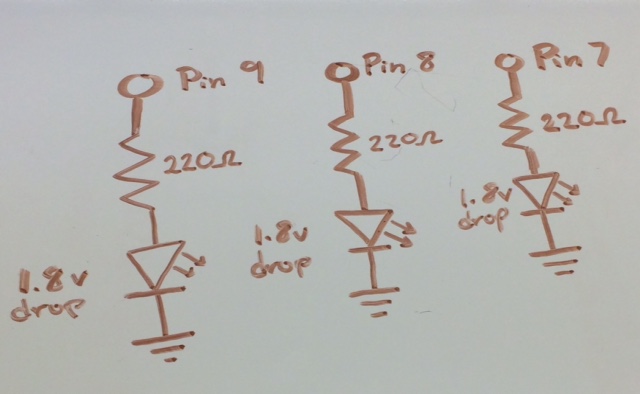 Pin 9
220Ω
1.8v
drop
Pin 8
220Ω
1.8v
drop
Pin 7
220Ω
1.8v
drop